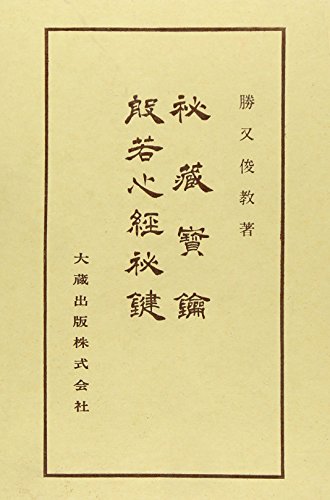 勝又俊教著
祕藏寶鑰
般若心經祕鍵
大蔵出版株式会社